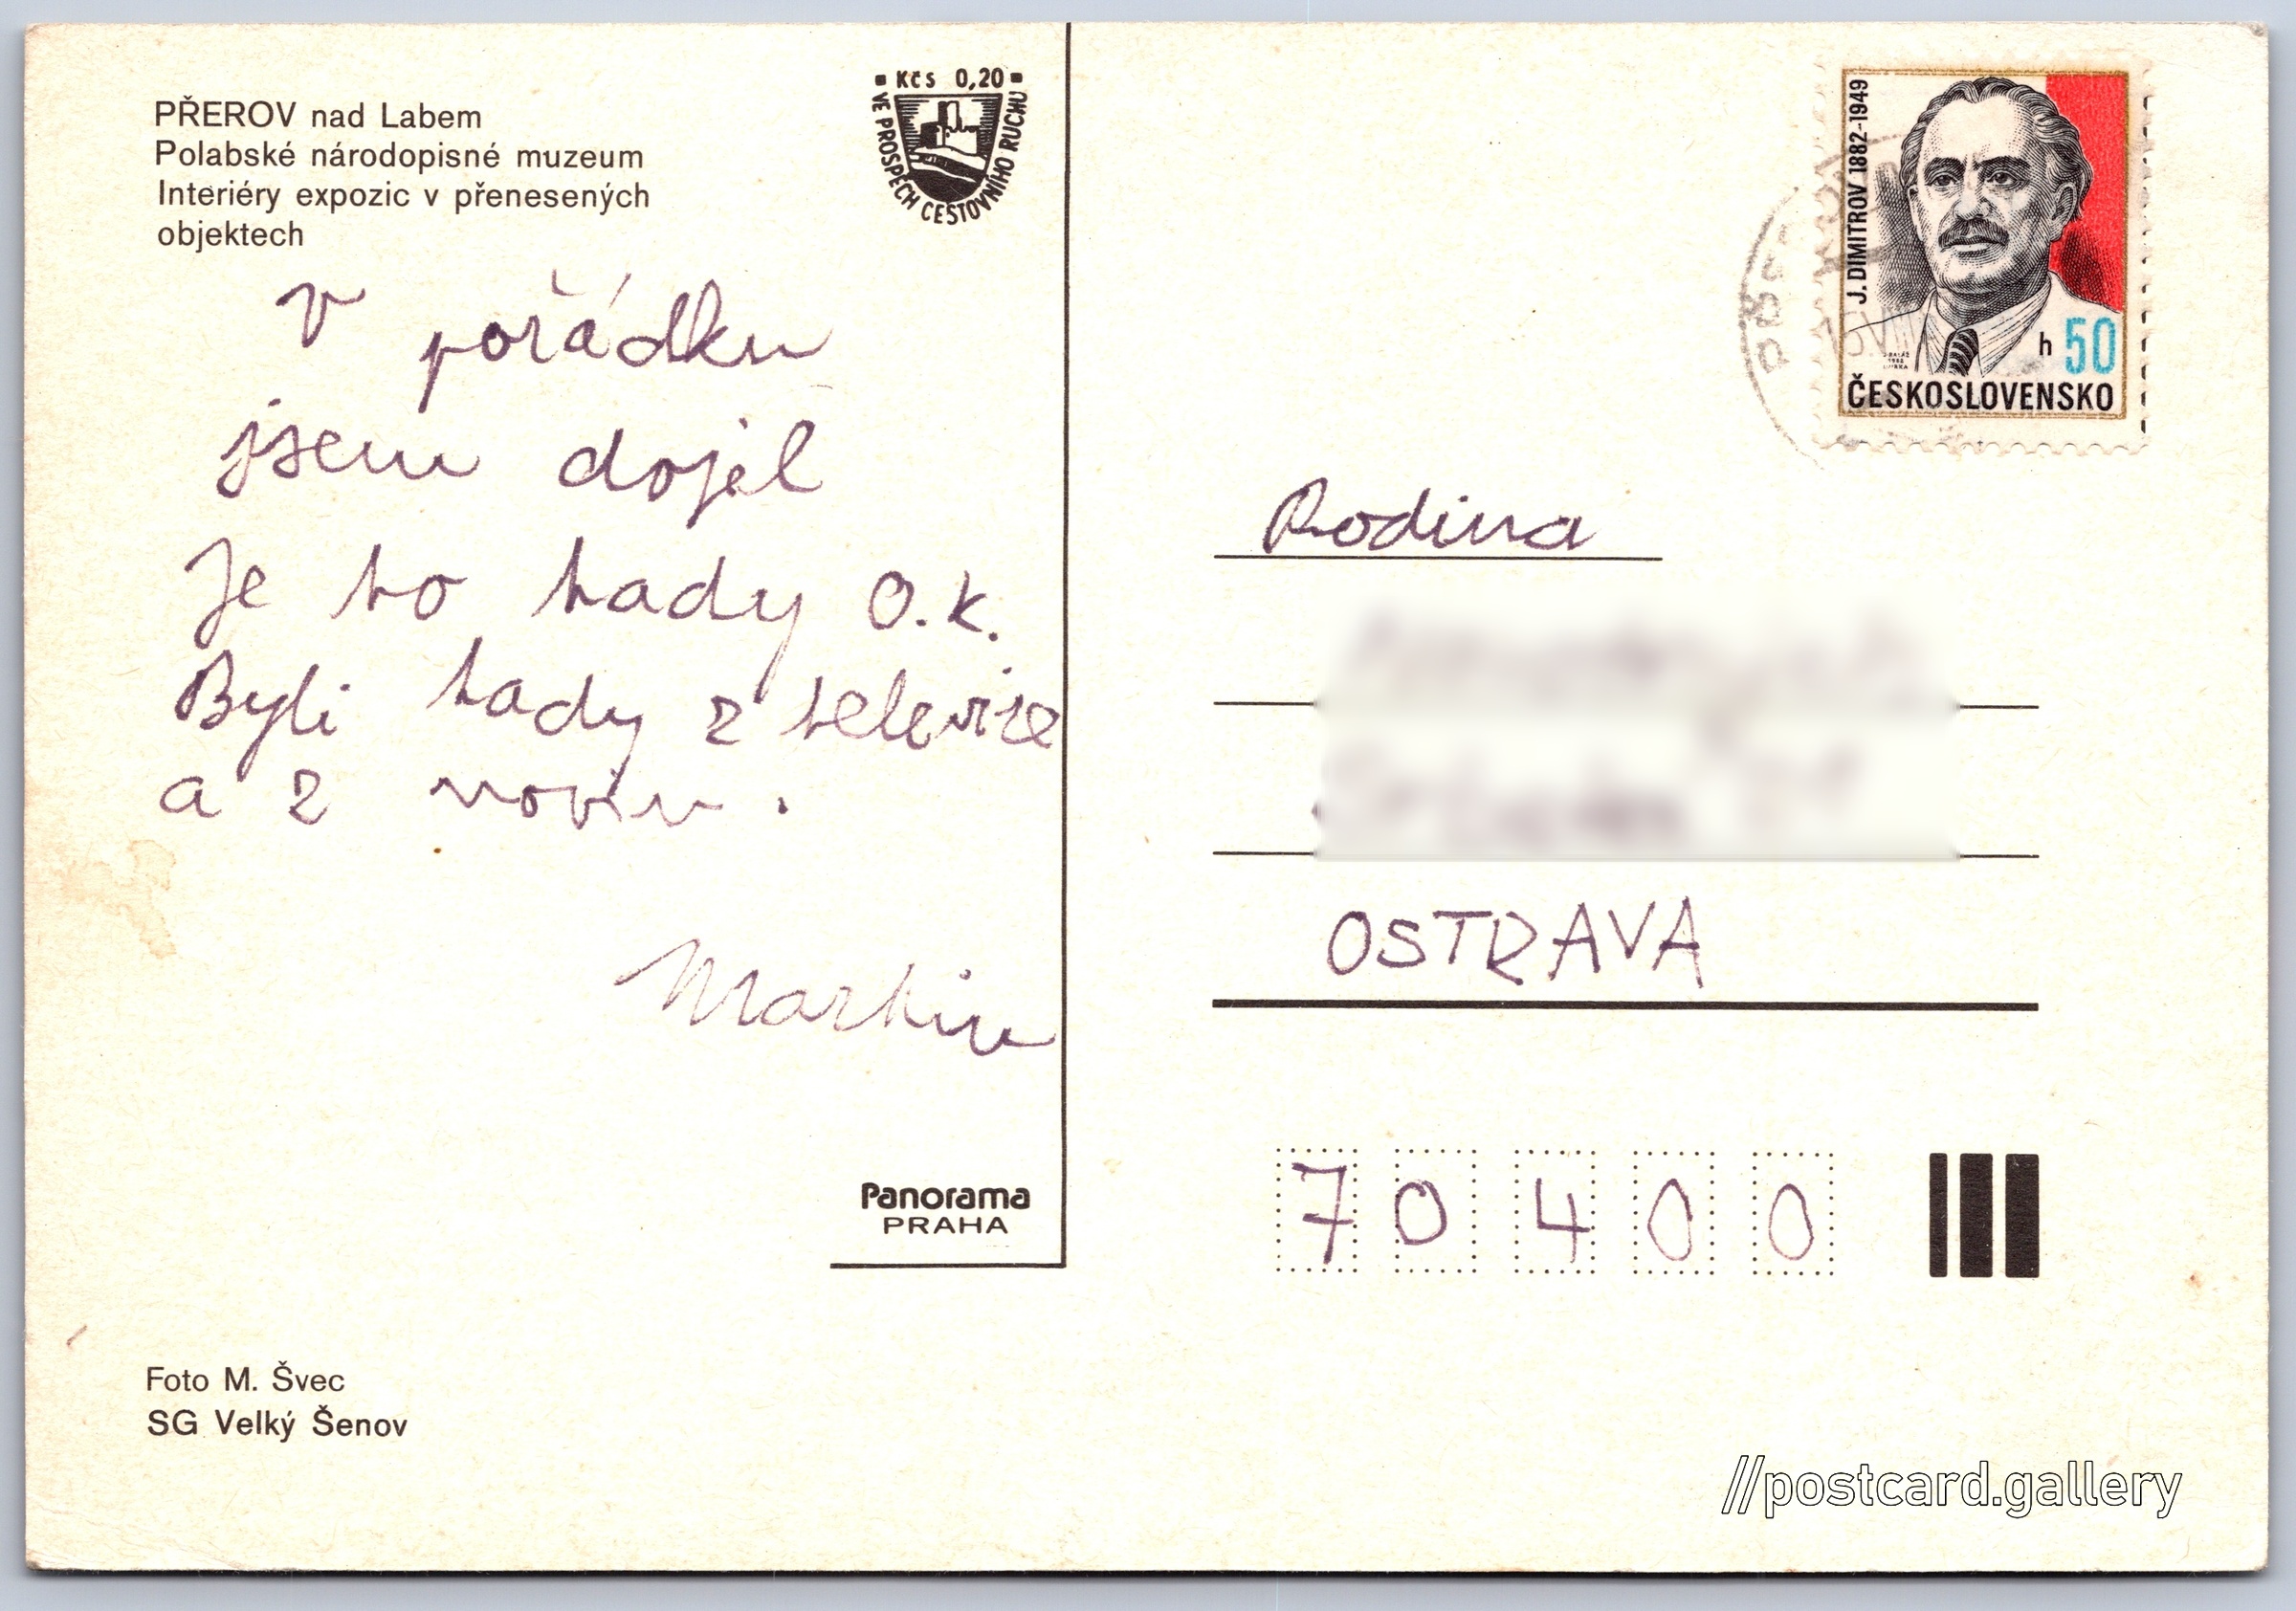 PŘEROV nad Labem
Polabské národopisné muzeum
Interiéry expozic v přenesených
objektech
Kčs 0,20
VE PROSPĚCH CESTOVNÍHO RUCHU
v pořádku
jsem dojel
Je to tady O.K.
Byli tady z televize
a z novin.
Martin
Panorama
PRAHA
Foto M. Švec
SG Velký Šenov
J. DIMITROV 1882-1949
h 50
ČESKOSLOVENSKO
Rodina
OSTRAVA
7 0 4 0 0
//postcard.gallery